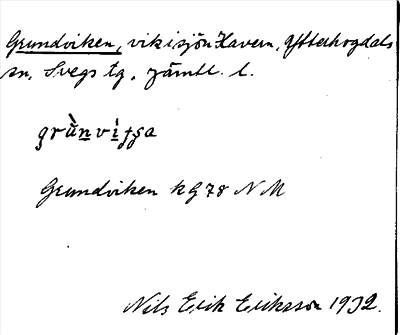 Grundviken, vik i sjön Havern, Ytterhogdals
sn, Svegs tg, Jämtl. l.
grùnvìʃʃa
Grundviken kG 78 N M
Nils Erik Eriksson 1932.